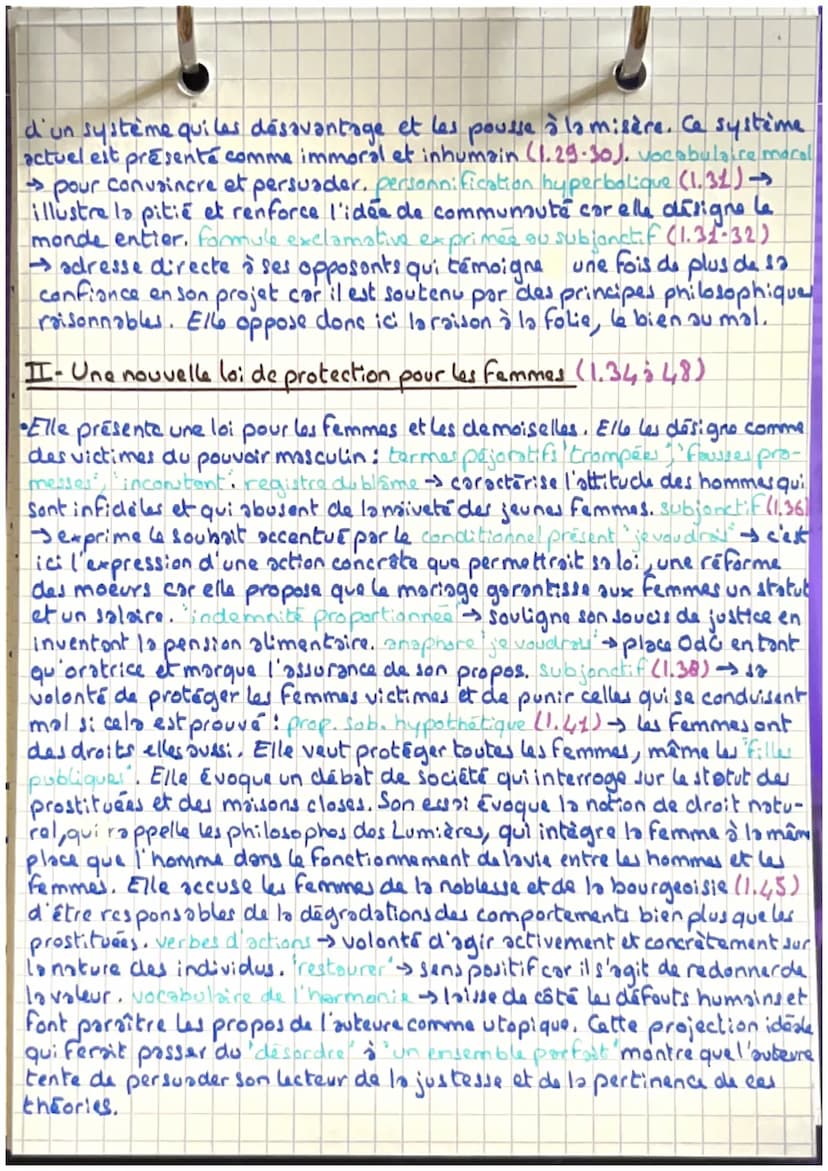 d'un système qui les désavantage et les pousse à la misère. Ce système
actuel est présenté comme immoral et inhumain (l.29-30). vocabulaire moral
→ pour convaincre et persuader. personnification hyperbolique (l.31) →
illustre la pitié et renforce l'idée de communauté car elle désigne le
monde entier. formule exclamative exprimée au subjonctif (l.31-32)
→ adresse directe à ses opposants qui témoigne une fois de plus de sa
confiance en son projet car il est soutenu par des principes philosophiques
raisonnables. Elle oppose donc ici la raison à la folie, le bien au mal.
II- Une nouvelle loi de protection pour les femmes (l.34 à 48)
•Elle présente une loi pour les femmes et les demoiselles. Elle les désigne comme
des victimes du pouvoir masculin : termes péjoratifs "trompées", "fausses pro-
messes", "inconstant". registre du blâme → caractérise l'attitude des hommes qui
sont infidèles et qui abusent de la naïveté des jeunes femmes. subjonctif (l.36)
→ exprime le souhait accentué par le conditionnel présent "je voudrais" → c'est
ici l'expression d'une action concrète que permettrait sa loi, une réforme
des moeurs car elle propose que le mariage garantisse aux femmes un statut
et un salaire. "indemnité proportionnée" → souligne son soucis de justice en
inventant la pension alimentaire. anaphore "je voudrais" → place OdG en tant
qu'oratrice et marque l'assurance de son propos. subjonctif (l.38) → sa
volonté de protéger les femmes victimes et de punir celles qui se conduisent
mal si cela est prouvé : prop. sub. hypothétique (l.41) → les femmes ont
des droits elles aussi. Elle veut protéger toutes les femmes, même les "filles
publiques". Elle évoque un débat de société qui interroge sur le statut des
prostituées et des maisons closes. Son essai évoque la notion de droit natu-
rel, qui rappelle les philosophes des Lumières, qui intègre la femme à la mêm
place que l'homme dans le fonctionnement de la vie entre les hommes et les
femmes. Elle accuse les femmes de la noblesse et de la bourgeoisie (l.45)
d'être responsables de la dégradations des comportements bien plus que les
prostituées. verbes d'actions → volonté d'agir activement et concrètement sur
la nature des individus. "restaurer" → sens positif car il s'agit de redonner de
la valeur. vocabulaire de l'harmonie → laisse de côté les défauts humains et
font paraître les propos de l'auteure comme utopique. Cette projection idéale
qui ferait passer du "désordre" à "un ensemble parfait" montre que l'auteure
tente de persuader son lecteur de la justesse et de la pertinence de ces
théories.